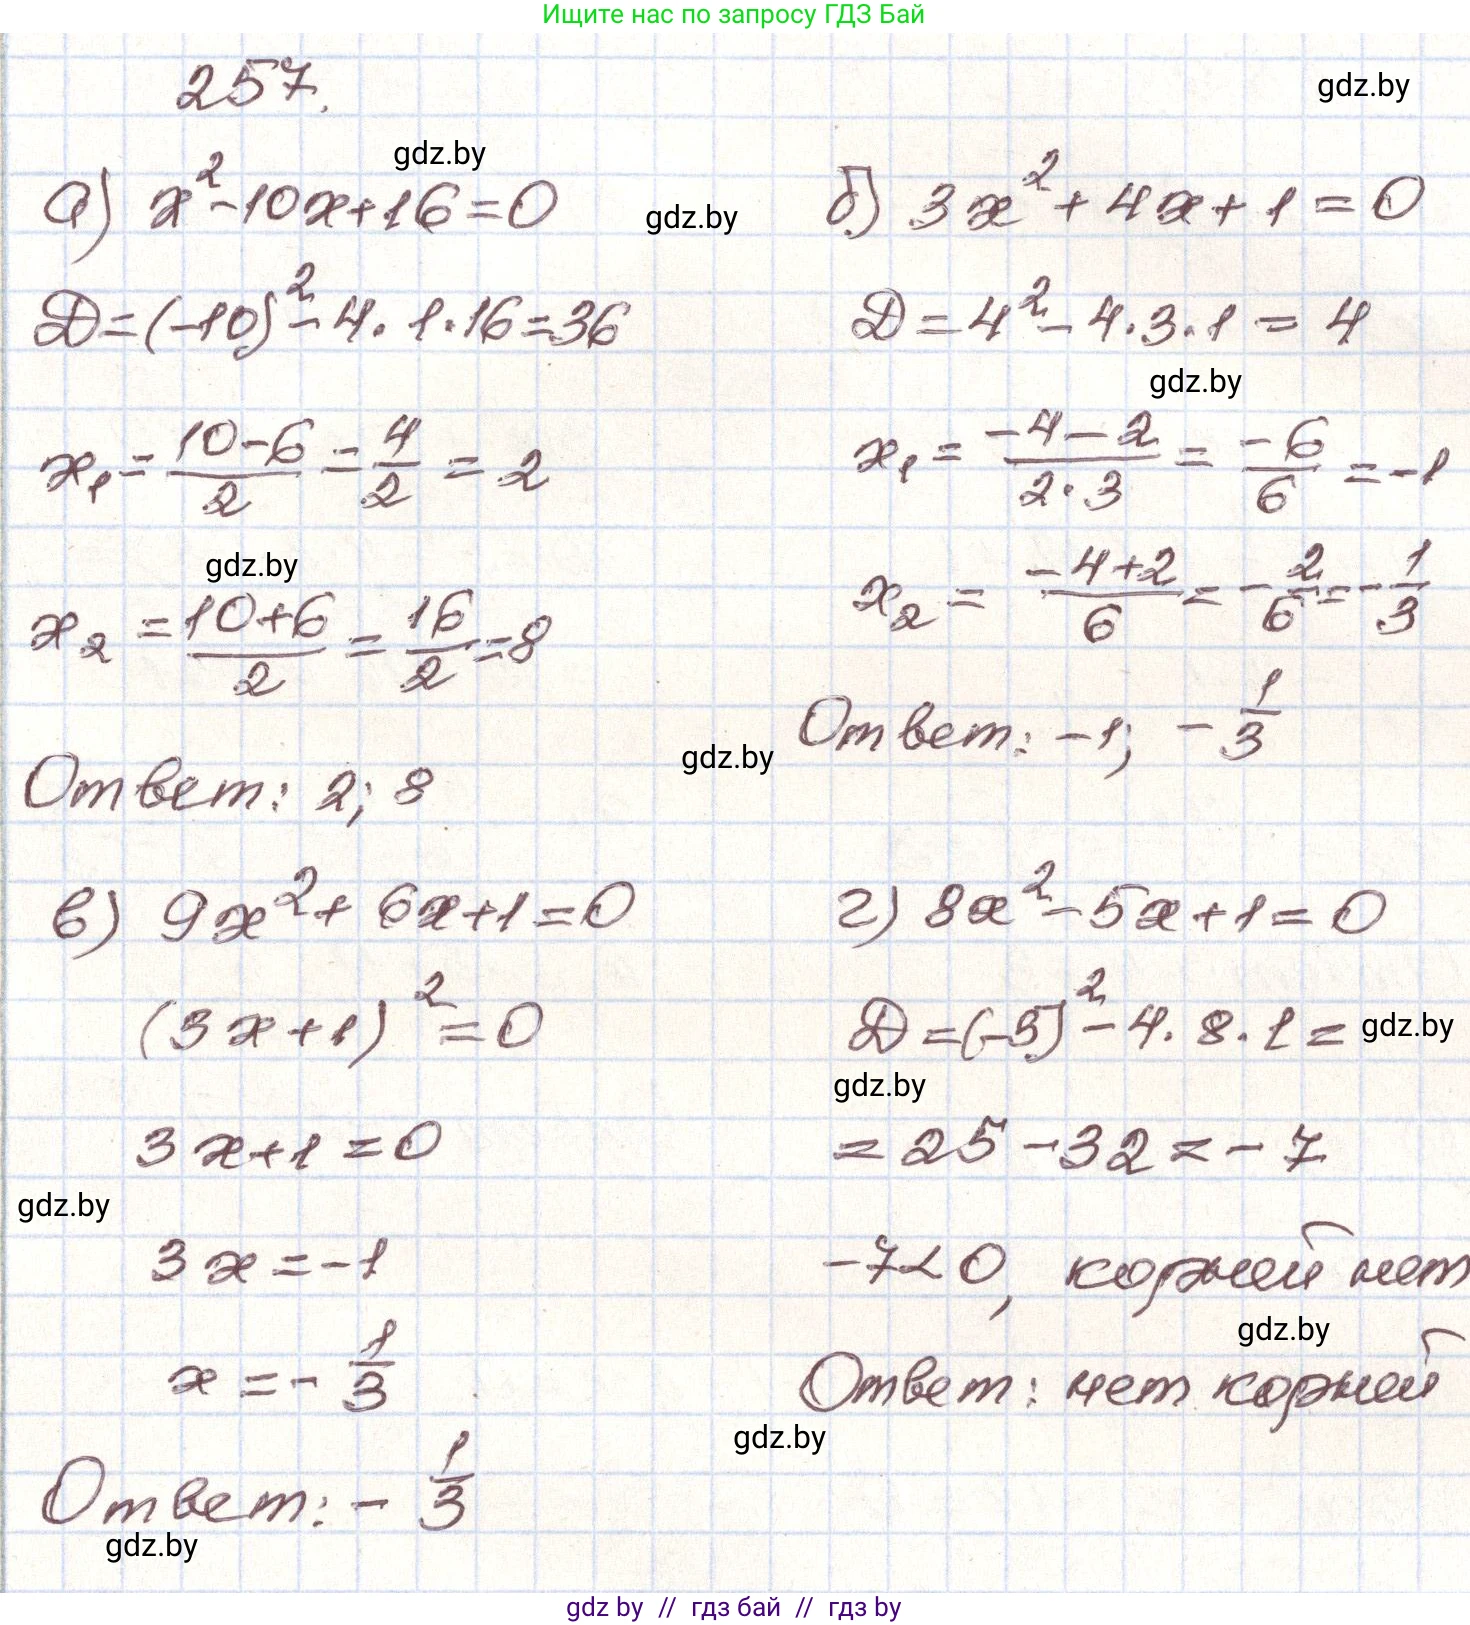 Ищите нас по запросу ГДЗ Бай
257.
gdz.by
gdz.by
а) x² - 10x + 16 = 0
gdz.by
D = (-10)² - 4 · 1 · 16 = 36
x₁ = (10 - 6)/2 = 4/2 = 2
gdz.by
x₂ = (10 + 6)/2 = 16/2 = 8
Ответ: 2; 8
б) 3x² + 4x + 1 = 0
D = 4² - 4 · 3 · 1 = 4
gdz.by
x₁ = (-4 - 2)/(2 · 3) = -6/6 = -1
x₂ = (-4 + 2)/6 = -2/6 = -1/3
Ответ: -1; -1/3
gdz.by
в) 9x² + 6x + 1 = 0
(3x + 1)² = 0
3x + 1 = 0
gdz.by
3x = -1
x = -1/3
Ответ: -1/3
gdz.by
г) 8x² - 5x + 1 = 0
D = (-5)² - 4 · 8 · 1 =
gdz.by
gdz.by
= 25 - 32 = -7
-7 < 0, корней нет
gdz.by
Ответ: нет корней
gdz.by
gdz by // гдз бай // гдз by